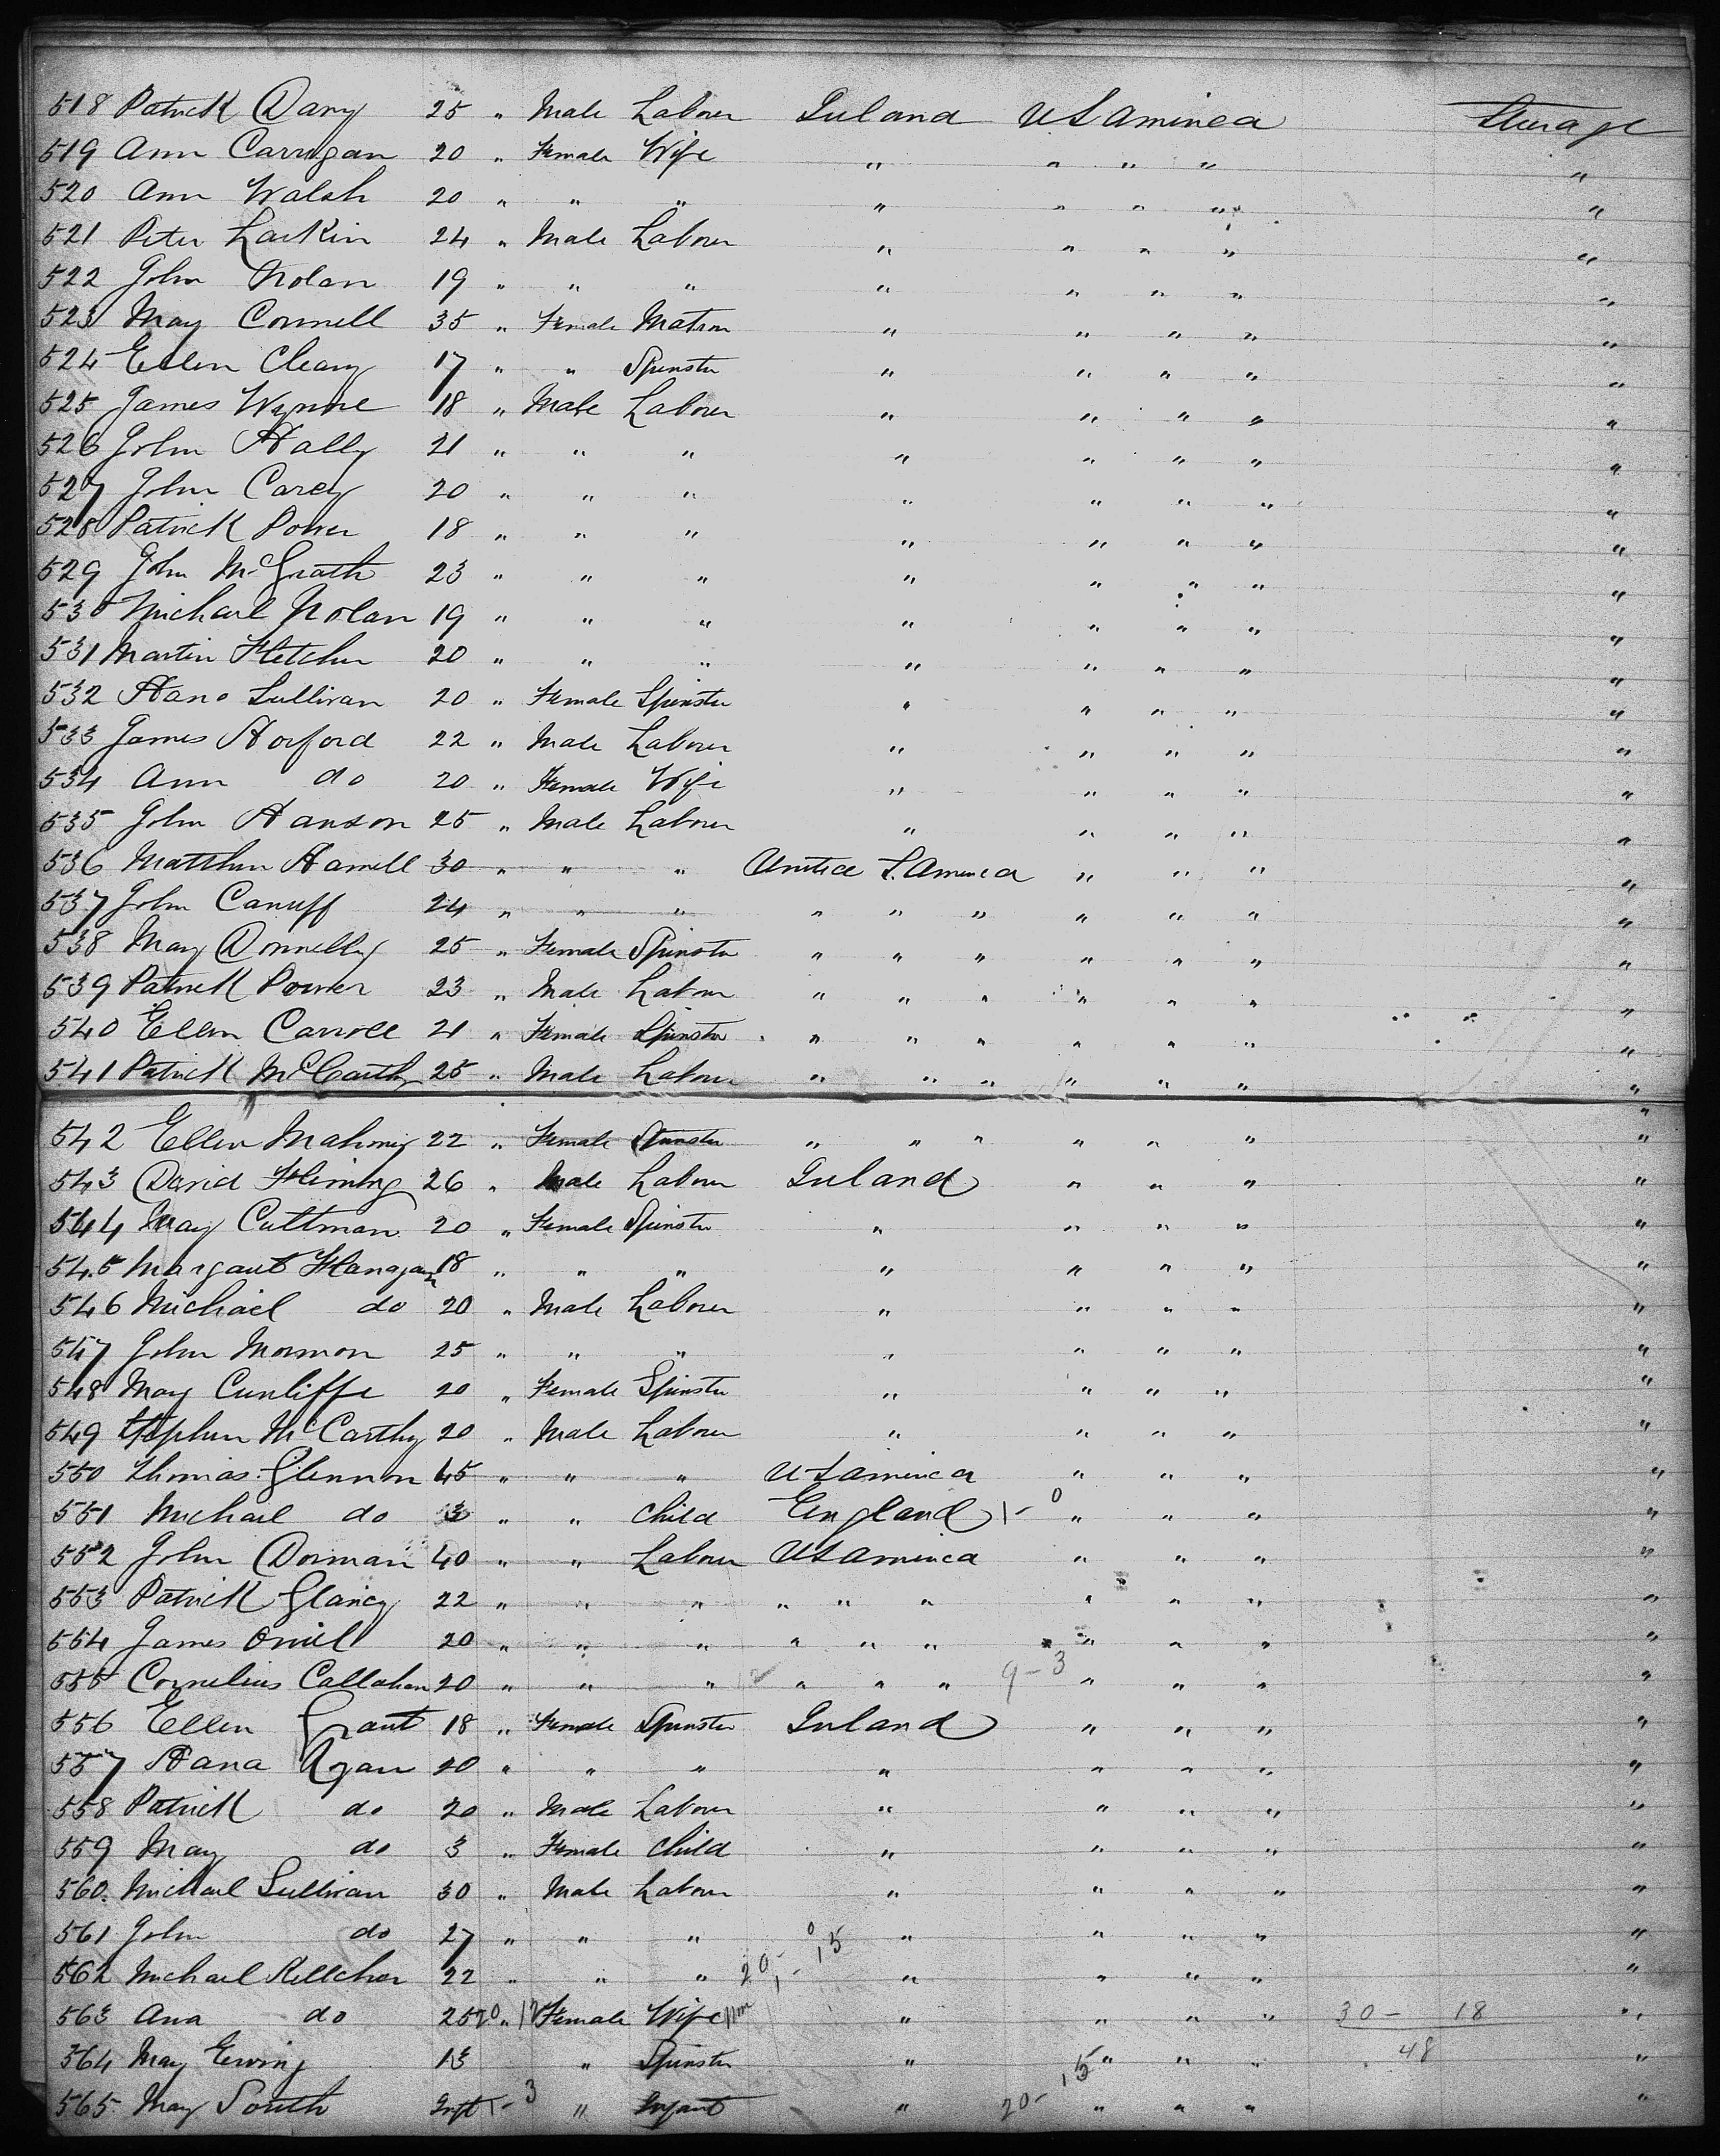 518 Patrick Dany 25 " Male Labour Ireland U S America Steerage
519 Ann Carrigan 20 " Female Wife " " " " "
520 Ann Walsh 20 " " " " " " " "
521 Peter Larkin 24 " Male Labour " " " " "
522 John Nolan 19 " " " " " " " "
523 Mary Connell 35 " Female Matron " " " " "
524 Ellen Cleary 17 " " Spinster " " " " "
525 James Wynne 18 " Male Labour " " " " "
526 John Hally 21 " " " " " " " "
527 John Carey 20 " " " " " " " "
528 Patrick Power 18 " " " " " " " "
529 John McGrath 23 " " " " " " " "
530 Michael Nolan 19 " " " " " " " "
531 Martin Fletcher 20 " " " " " " " "
532 Hano Sullivan 20 " Female Spinster " " " " "
533 James Horford 22 " Male Labour " " " " "
534 Ann do 20 " Female Wife " " " " "
535 John Hanson 25 " Male Labour " " " " "
536 Matthew Hamell 30 " " " United S. America " " " "
537 John Canuff 24 " " " " " " " " " "
538 Mary Donnelly 25 " Female Spinster " " " " " " "
539 Patrick Power 23 " Male Labour " " " " " " "
540 Ellen Carroll 21 " Female Spinster " " " " " " "
541 Patrick McCarthy 25 " Male Labour " " " " " " "
542 Ellen Mahony 22 " Female Spinster " " " " " " "
543 David Fleming 26 " Male Labour Ireland " " " "
544 Mary Cuttman 20 " Female Spinster " " " " "
545 Margaret Flanagan 18 " " " " " " " "
546 Michael do 20 " Male Labour " " " " "
547 John Mormon 25 " " " " " " " "
548 Mary Cunliffe 20 " Female Spinster " " " " "
549 Stephen McCarthy 20 " Male Labour " " " " "
550 Thomas Glennon 45 " " " U S America " " " "
551 Michael do 3 " " Child England 1-0 " " " "
552 John Dorman 40 " " Labour U S America " " " "
553 Patrick Glancy 22 " " " " " " " " " "
554 James Oniel 20 " " " " " " " " " "
555 Cornelius Callahan 20 " " " " " " 9-3 " " " "
556 Ellen Grant 18 " Female Spinster Ireland " " " "
557 Hana Ryan 20 " " " " " " " "
558 Patrick do 20 " Male Labour " " " " "
559 Mary do 3 " Female Child " " " " "
560 Michael Sullivan 30 " Male Labour " " " " "
561 John do 27 " " " " " " " "
562 Michael Kellcher 22 " " " 20- 15 " " " " "
563 Ana do 25 20 " 12 Female Wife " " " " 30- 18 "
564 Mary Ewing 13 " Spinster " 15 " " " 48 "
565 Mary South Inft 1-3 " Infant " 20- " " " "